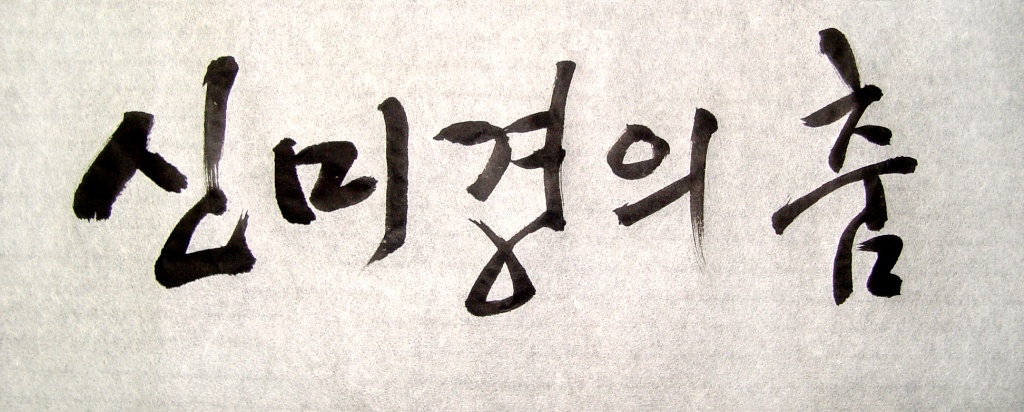 신미경의 춤